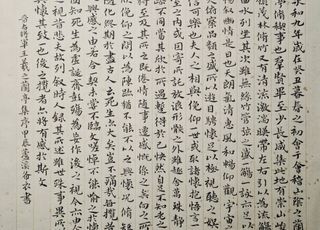 和九年歲在癸丑暮春之初會于會稽山
亭脩禊事也羣賢畢至少長咸集此地有崇山峻
茂林脩竹有清流激湍暎帶左右引以為流觴
列坐其次雖無絲竹管弦之盛一觴一詠亦足以
暢叙幽情是日也天朗氣清惠風和暢仰觀宇宙之
俯察品類之盛所以遊目騁懷足以極視聽之娛
信可樂也夫人之相與俯仰一世或取諸懷抱悟言一
室之內或因寄所託放浪形骸之外雖趣舍萬殊靜
不同當其欣於所遇暫得於己快然自足不知老之
將至及其所之既惓情隨事遷感慨係之矣向之所
欣俛仰之間以為陳迹猶不能不以之興懷況脩短
隨化終期於盡古人云死生亦大矣豈不痛哉每攬昔
興感之由若合一契未嘗不臨文嗟悼不能喻之於懷
固知一死生為虛誕齊彭殤為妄作後之視今亦由今
之視昔悲夫故列叙時人錄其所述雖世殊事異所以
興懷其致一也後之攬者亦將有感於斯文
晉右將軍王羲之蘭亭集序甲辰